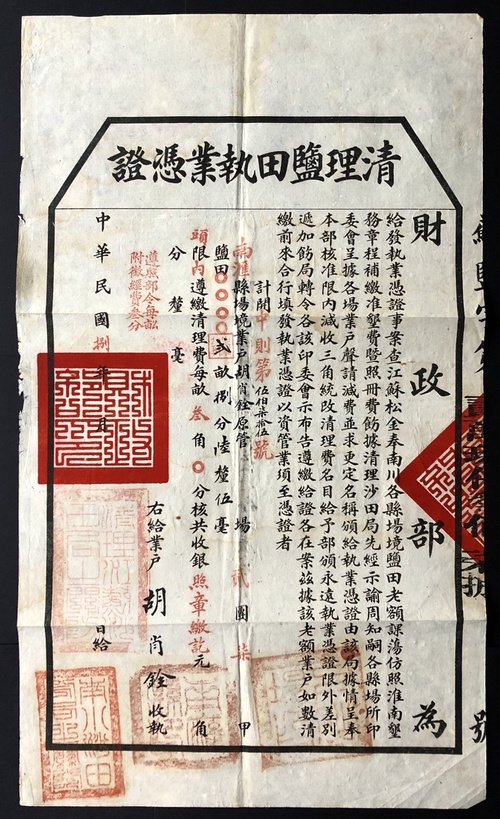 清理鹽田執業憑證
財政部為
給發執業憑證事案查江蘇松金奉南川各縣場境鹽田老額課蕩仿照淮南墾
務章程補繳准墾費暨照冊費飭據清理沙田局先經示諭周知嗣各縣場所印
委會呈據各場業戶聲請減費並求更定名稱頒給執業憑證由該局據情呈奉
本部核准限內減收三角統改清理費名目給予部頒永遠執業憑證限外差別
遞加飭局轉令各該印委會示布告遵繳給證各在案茲據該老額業戶如數清
繳前來合行填發執業憑證以資管業須至憑證者
計開中則第伍伯柒拾伍號
南滙縣場境業戶胡肖銓原管場貳團柒甲
鹽田〇〇〇〇貳畝捌分陸釐伍毫
頭限內遵繳清理費每畝叁角〇分核共收銀照章繳訖元角
分釐毫
遵照部令每畝
附徵經費叁分
右給業戶胡肖銓收執
中華民國捌年月日給